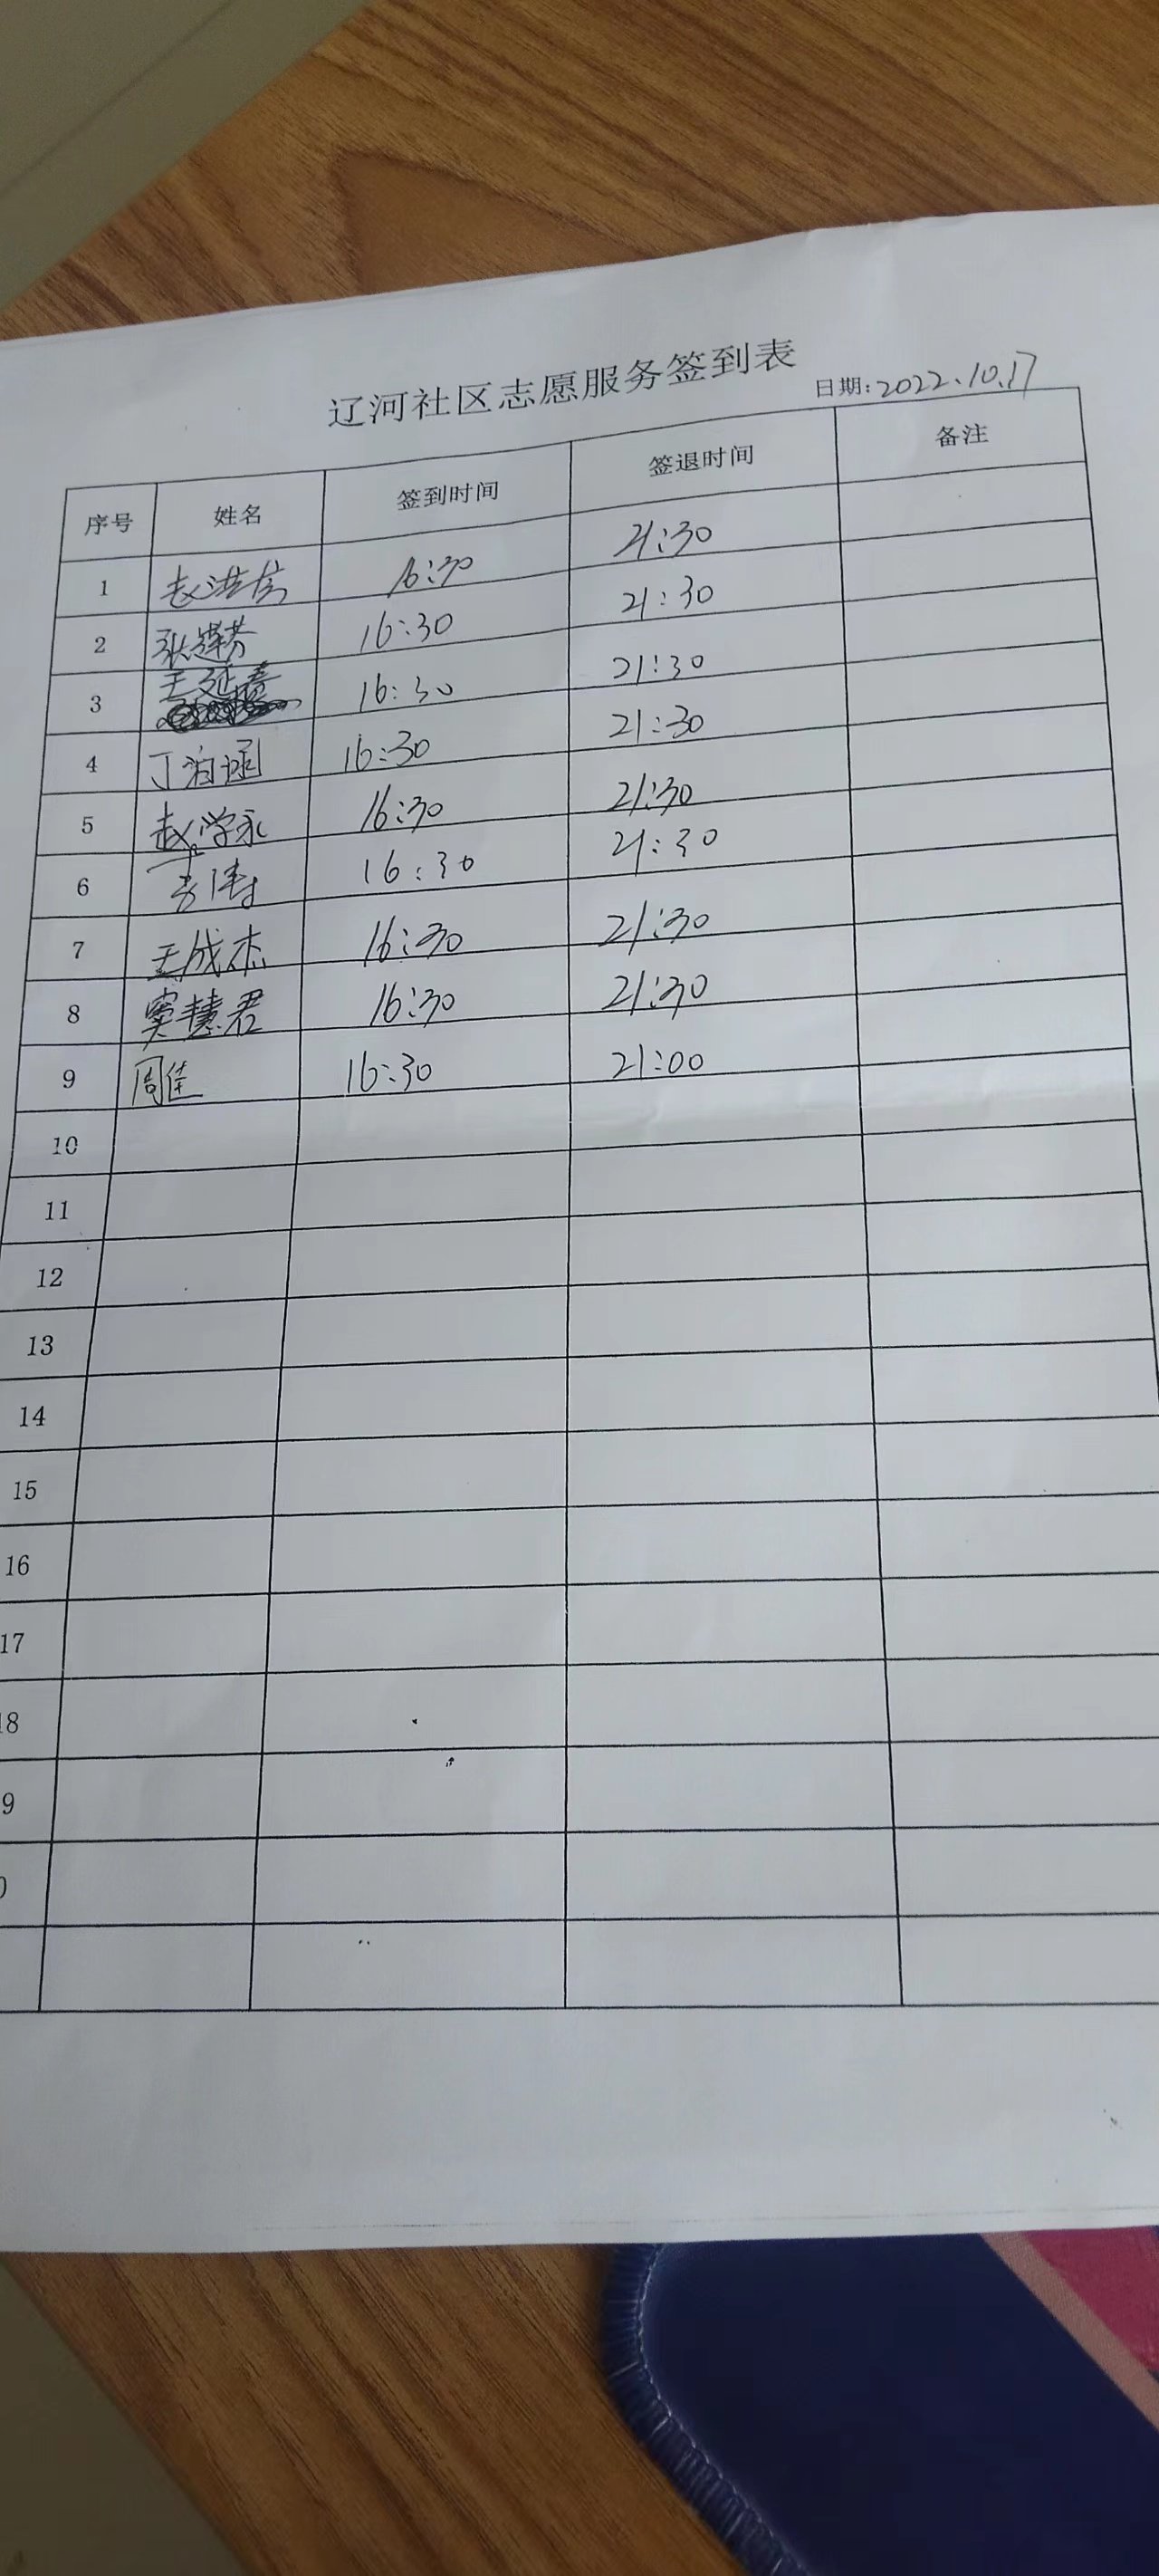 辽河社区志愿服务签到表
日期:2022.10.17
序号 姓名 签到时间 签退时间 备注
1 赵洪信 16:30 21:30
2 16:30 21:30
3 16:30 21:30
4 丁泊涵 16:30 21:30
5 赵学永 16:30 21:30
6 李涛 16:30 21:30
7 王成杰 16:30 21:30
8 窦慧君 16:30 21:30
9 周佳 16:30 21:00
10
11
12
13
14
15
16
17
18
9
0